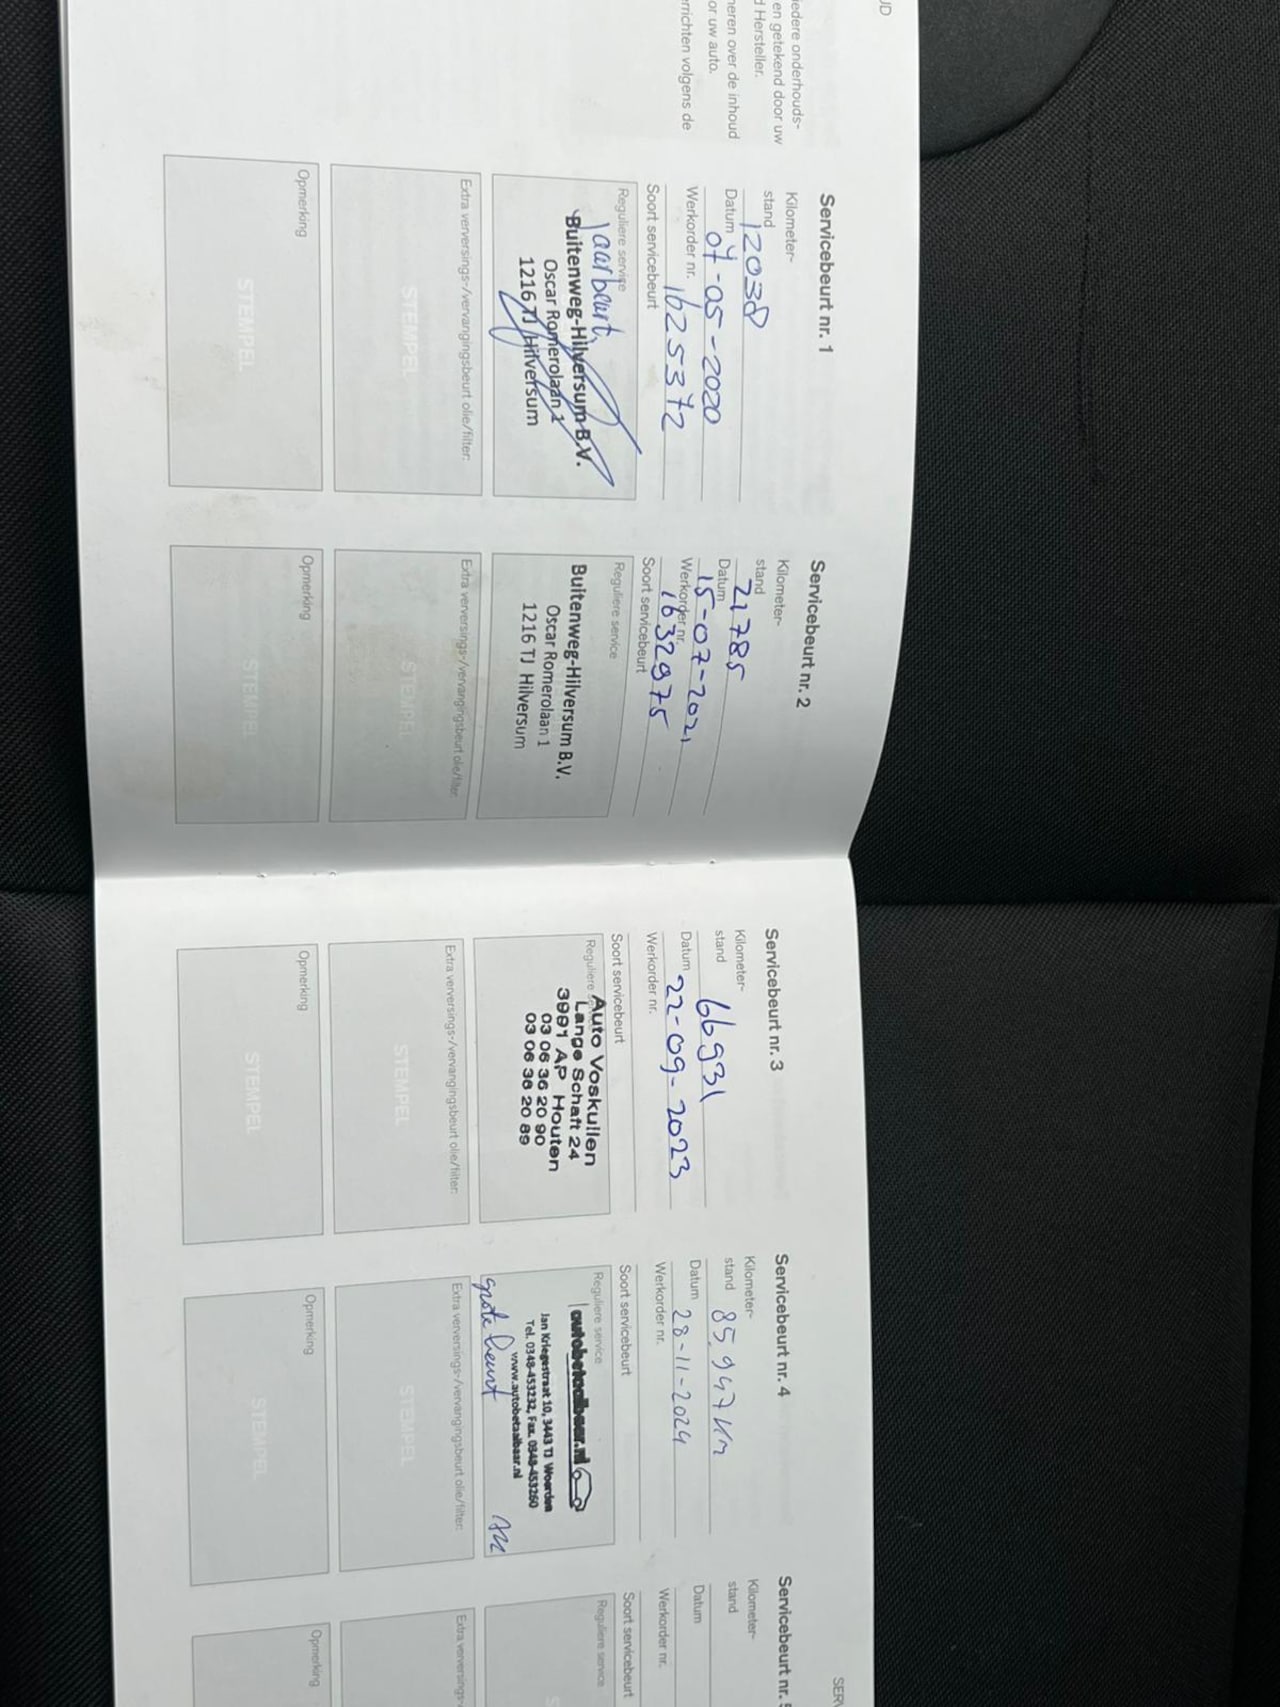 UD
iedere onderhouds-
en getekend door uw
d Hersteller.
neren over de inhoud
or uw auto.
rrichten volgens de
Servicebeurt nr. 1
Kilometer-
stand 12038
Datum 07-05-2020
Werkorder nr. 1625372
Soort servicebeurt
Reguliere service
Jaarbeurt
Buitenweg-Hilversum B.V.
Oscar Romerolaan 1
1216 TJ Hilversum
Extra verversings-/vervangingsbeurt olie/filter:
STEMPEL
Opmerking
STEMPEL
Servicebeurt nr. 2
Kilometer-
stand 21785
Datum 15-07-2021
Werkorder nr. 1632975
Soort servicebeurt
Reguliere service
Buitenweg-Hilversum B.V.
Oscar Romerolaan 1
1216 TJ Hilversum
Extra verversings-/vervangingsbeurt olie/filter:
STEMPEL
Opmerking
STEMPEL
Servicebeurt nr. 3
Kilometer-
stand 66931
Datum 22-09-2023
Werkorder nr.
Soort servicebeurt
Reguliere
Auto Voskuilen
Lange Schaft 24
3991 AP Houten
03 06 36 20 90
03 06 36 20 89
Extra verversings-/vervangingsbeurt olie/filter:
STEMPEL
Opmerking
STEMPEL
Servicebeurt nr. 4
Kilometer-
stand 85.947 km
Datum 28-11-2024
Werkorder nr.
Soort servicebeurt
Reguliere service
autobetaalbaar.nl
Jan Kriegestraat 10, 3443 TJ Woerden
Tel. 0348-453232, Fax. 0348-453260
www.autobetaalbaar.nl
grote beurt
Extra verversings-/vervangingsbeurt olie/filter:
STEMPEL
Opmerking
STEMPEL
SERV
Servicebeurt nr. 5
Kilometer-
stand
Datum
Werkorder nr.
Soort servicebeurt
Reguliere service
S
Extra verversings-
Opmerking